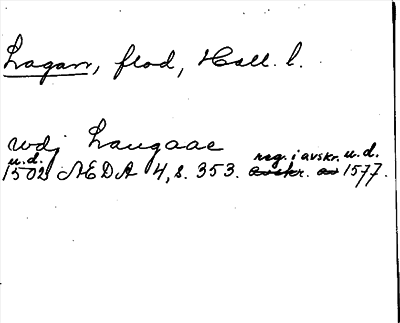 Lagan, flod, Hall. l.
wdj Laugaae
u.d. reg. i avskr. u.d.
1502 NEDA 4, s. 353. avskr. av 1577.